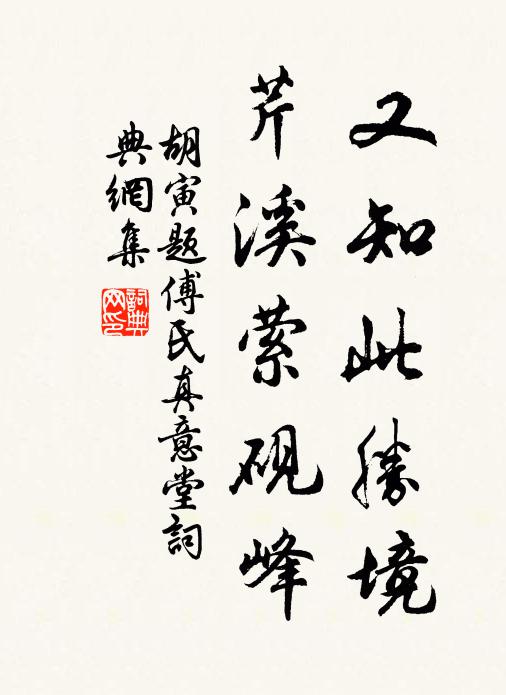 又知此勝境
芹溪萦砚峰
胡寅题傅氏真意堂詞
典網集
詞典网印